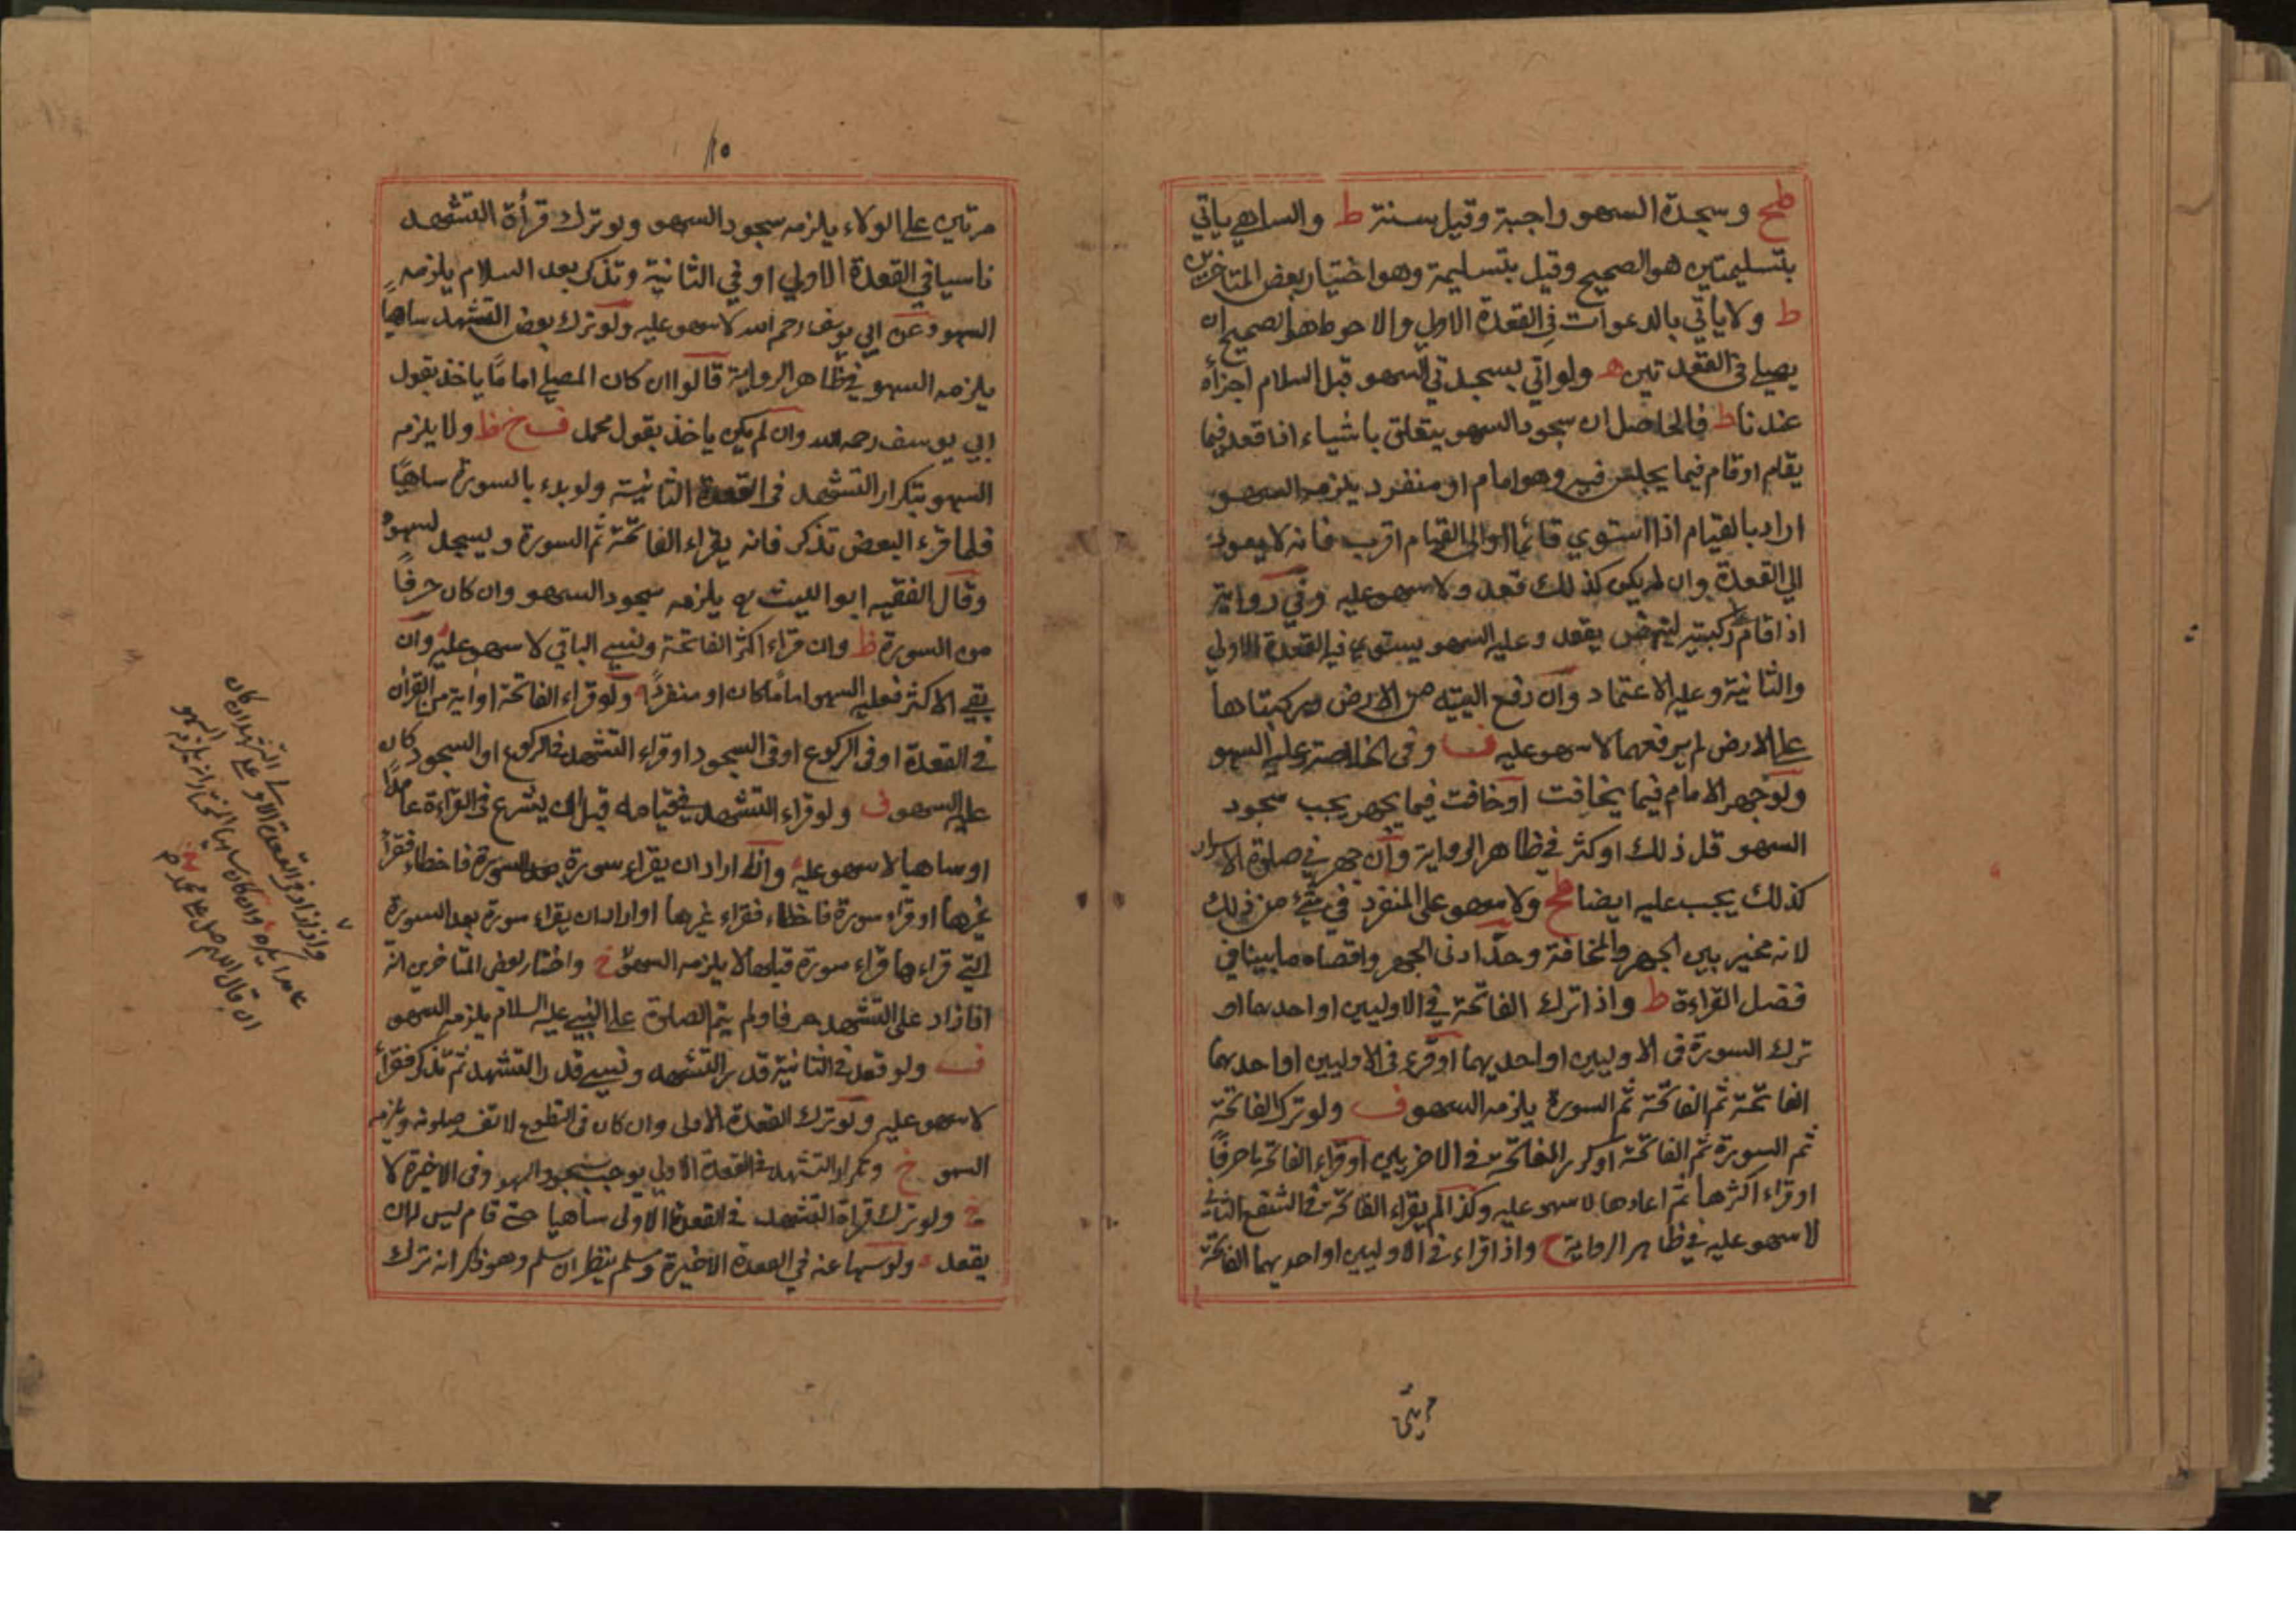 طح وسجدة السهو واجبة وقيل سنة ط والساهي ياتي
بتسليمتين هو الصحيح وقيل بتسليمة وهو اختيار بعض المتاخرين
ط ولا ياتي بالدعوات في القعدة الاولي والاحوط هو الصحيح ان
يصلي في القعدتين ه ولو اتي بسجدتي السهو قبل السلام اجزأه
عندنا ط فالحاصل ان سجود السهو يتعلق باشياء اذا قعد فيما
يقام او قام فيما يجلس فيه وهو امام او منفرد يلزمه السهو
اراد بالقيام اذا استوي قائما او الى القيام اقرب فانه لا يعود
الي القعدة وان لم يكن كذلك قعد ولا سهو عليه وفي رواية
اذا قام على ركبتيه لينهض يقعد وعليه السهو يستوي فيه القعدة الاولي
والثانية وعليه الاعتماد وان رفع اليتيه من الارض وركبتاها
على الارض لم يرفعهما لا سهو عليه ف وفي الخلاصة وعليه السهو
ولو جهر الامام فيما يخافت او خافت فيما يجهر يجب سجود
السهو قل ذلك او كثر في ظاهر الرواية وان جهر في صلوة الاسرار
كذلك يجب عليه ايضا طح ولا سهو على المنفرد في شيء من ذلك
لانه مخير بين الجهر والمخافتة وحد ادنى الجهر واقصاه ما بينا في
فصل القراءة ط واذا ترك الفاتحة في الاوليين او احديهما او
ترك السورة في الاوليين او احديهما او قرء في الاوليين او احديهما
الفاتحة ثم الفاتحة ثم السورة يلزمه السهو ف ولو ترك الفاتحة
ثم السورة ثم الفاتحة او كرر الفاتحة في الاخريين او قراء الفاتحة الا حرفاً
او قراء اكثرها ثم اعادها لا سهو عليه وكذا لم يقراء الفاتحة في الشفع الثاني
لا سهو عليه في ظاهر الرواية ح واذا قراء في الاوليين او احديهما الفاتحة
مرتين
١٥
مرتين على الولاء يلزمه سجود السهو ولو ترك قرأة التشهد
ناسيا في القعدة الاولي او في الثانية وتذكر بعد السلام يلزمه
السهو وعن ابي يوسف رحمه الله لا سهو عليه ولو ترك بعض التشهد ساهيا
يلزمه السهو في ظاهر الرواية قالوا ان كان المصلي اماما ياخذ بقول
ابي يوسف رحمه الله وان لم يكن ياخذ بقول محمد ف خ ظ ولا يلزمه
السهو بتكرار التشهد في القعدة الثانية ولو بدء بالسورة ساهيا
فلما قرء البعض تذكر فانه يقراء الفاتحة ثم السورة ويسجد لسهوه
وقال الفقيه ابو الليث يلزمه سجود السهو وان كان حرفاً
من السورة ظ وان قراء اكثر الفاتحة ونسي الباقي لا سهو عليه وان
بقي الاكثر فعليه السهو اماما كان او منفرداً ولو قراء الفاتحة او اية من القرأن
في القعدة او في الركوع او في السجود او قراء التشهد في الركوع او السجود كان
عليه السهو ف ولو قراء التشهد في قيامه قبل ان يشرع في القراءة عامداً
او ساهيا لا سهو عليه واذا اراد ان يقراء سورة بعد السورة فاخطاء فقرأ
غيرها او قراء سورة فاخطاء فقراء غيرها او اراد ان يقراء سورة بعد السورة
التي قراءها قراء سورة قبلها لا يلزمه السهو خ واختار بعض المتاخرين انه
اذا زاد على التشهد حرفا ولم يتم الصلوة على النبي عليه السلام يلزمه السهو
ف ولو قعد في الثانية قدر التشهد ونسي قدر التشهد ثم تذكر فقرأ
لا سهو عليه ولو ترك القعدة الاولى وان كان في التطوع لا تفسد صلوته ويلزمه
السهو خ وتكرار التشهد في القعدة الاولي يوجب سجود السهو وفي الاخيرة لا
خ ولو ترك قراة التشهد في القعدة الاولى ساهيا حتى قام ليس له ان
يقعد ه ولو سها عنه في القعدة الاخيرة وسلم ينظر ان سلم وهو ذاكر انه ترك
واذا زاد في القعدة الاولى على التشهد ان كان
عامدا يكره وان كان ساهيا المختار انه يلزمه السهو